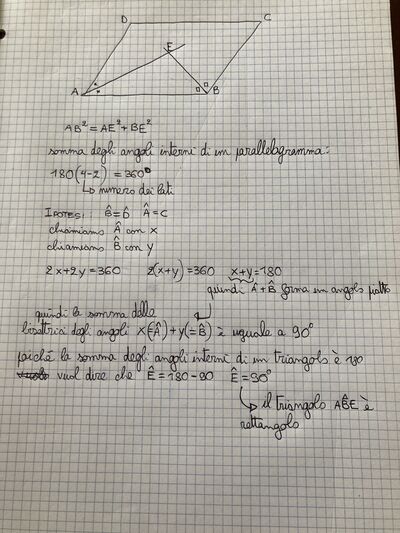 D
C
E
A
B
AB² = AE² + BE²
somma degli angoli interni di un parallelogramma:
180(4-2) = 360°
↳ numero dei lati
IPOTESI: B̂=D̂ Â=C
chiamiamo Â con x
chiamiamo B̂ con y
2x+2y=360 2(x+y)=360 x+y=180
quindi Â+B̂ forma un angolo piatto
quindi la somma delle
bisettrici degli angoli x(=Â)+y(=B̂) è uguale a 90°
poiché la somma degli angoli interni di un triangolo è 180
vuol dire che Ê=180-90 Ê=90°
↳ il triangolo AB̂E è
rettangolo